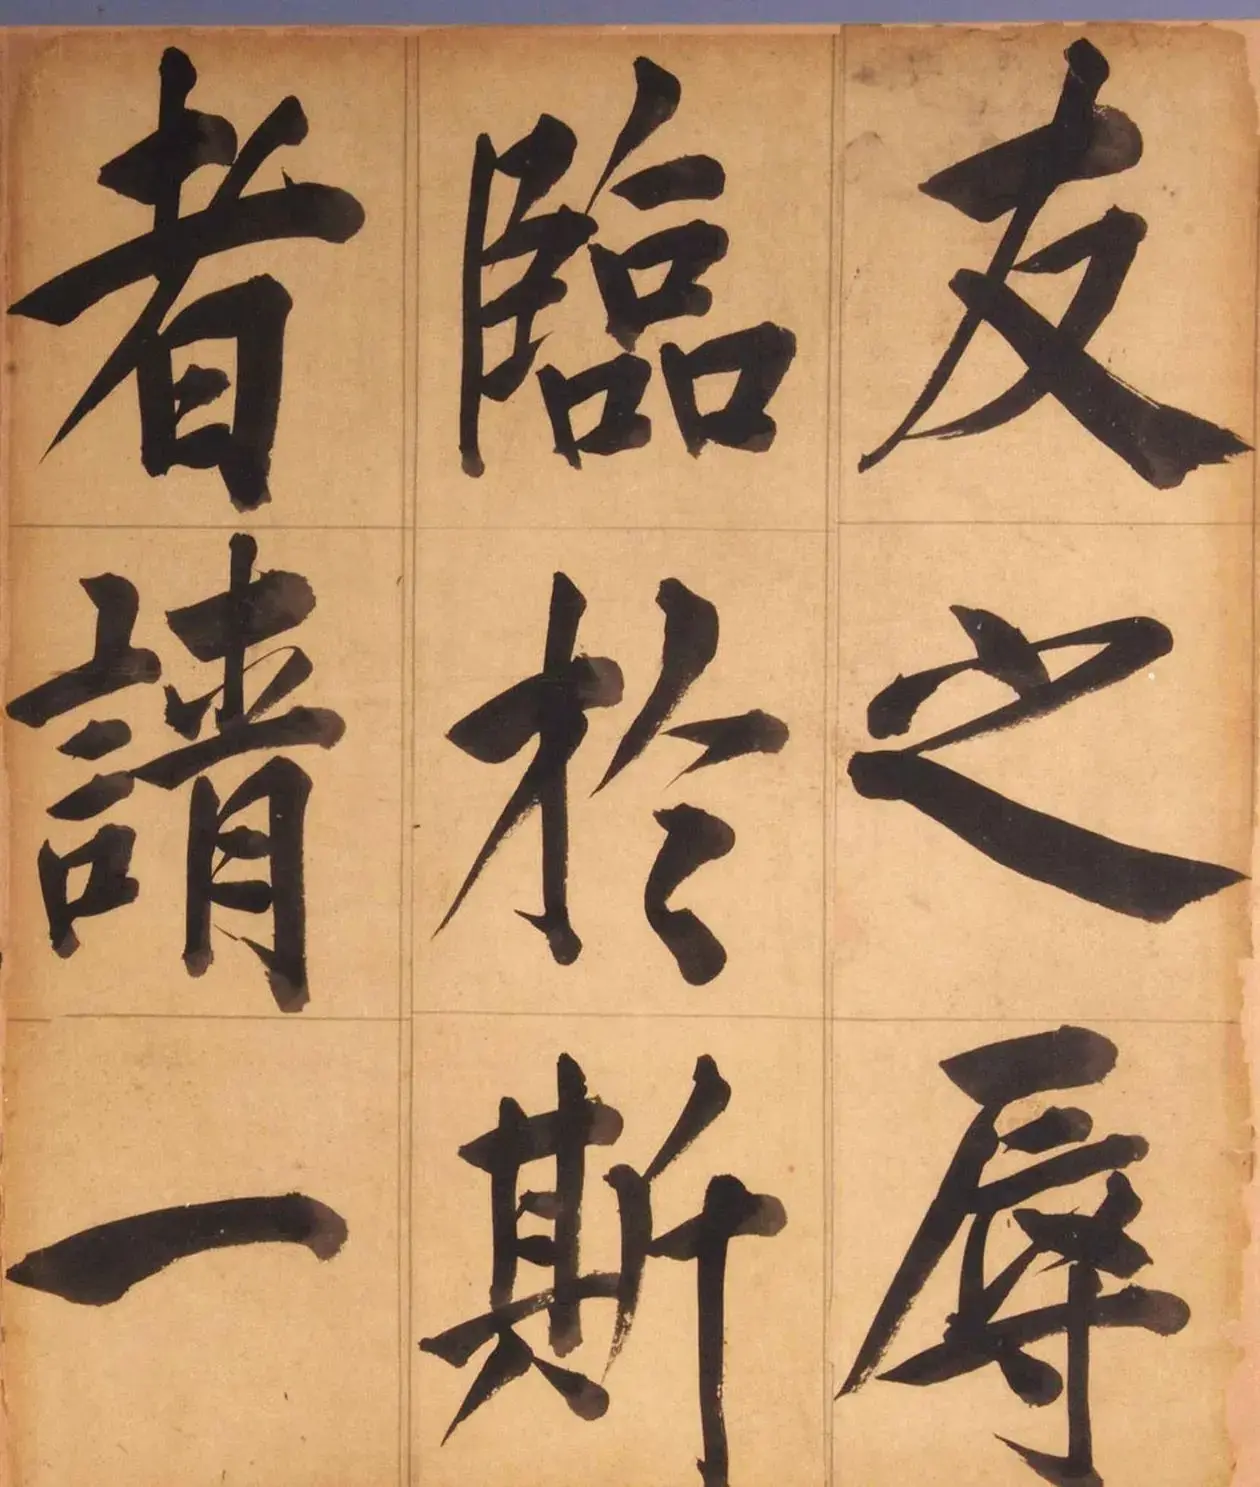 友之辱
臨於斯
者請一